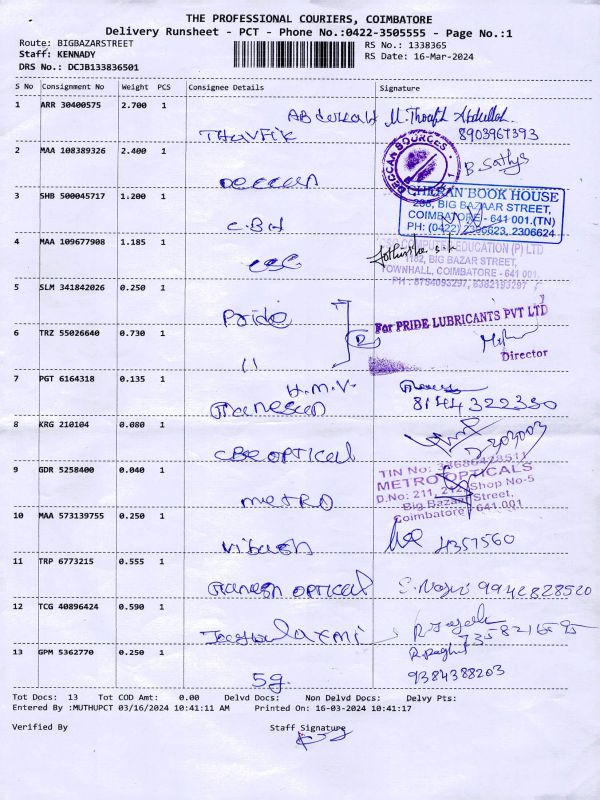 THE PROFESSIONAL COURIERS, COIMBATORE
Delivery Runsheet - PCT - Phone No.:0422-3505555 - Page No.:1
Route: BIGBAZARSTREET
RS No.: 1338365
Staff: KENNADY
RS Date: 16-Mar-2024
DRS No.: DCJB133836501
S No Consignment No Weight PCS Consignee Details Signature
1 ARR 30400575 2.700 1
8903967393
2 MAA 108389326 2.400 1
DECCAN SOURCES
B. Sathya
Deccan
3 SHB 500045717 1.200 1
CHERAN BOOK HOUSE
BIG BAZAAR STREET,
COIMBATORE - 641 001.(TN)
PH: (0422) 2396623, 2306624
C.B.H
4 MAA 109677908 1.185 1
EDUCATION (P) LTD
1162, BIG BAZAR STREET,
TOWNHALL, COIMBATORE - 641 001.
CSC
5 SLM 341842026 0.250 1
Pride
For PRIDE LUBRICANTS PVT LTD
6 TRZ 55026640 0.730 1
Director
11
7 PGT 6164318 0.135 1
H.M.V.
8144322350
8 KRG 210104 0.080 1
CBE OPTICAL
9 GDR 5258400 0.040 1
METRO OPTICALS
D.No: 211, 212, Shop No-5
Big Bazaar Street,
Coimbatore - 641 001
METRO
10 MAA 573139755 0.250 1
4357560
11 TRP 6773215 0.555 1
Ganesh OPTICAL 9942828520
12 TCG 40896424 0.590 1
13 GPM 5362770 0.250 1
9384388203
5g.
Tot Docs: 13 Tot COD Amt: 0.00 Delvd Docs: Non Delvd Docs: Delvy Pts:
Entered By :MUTHUPCT 03/16/2024 10:41:11 AM Printed On: 16-03-2024 10:41:17
Verified By Staff Signature